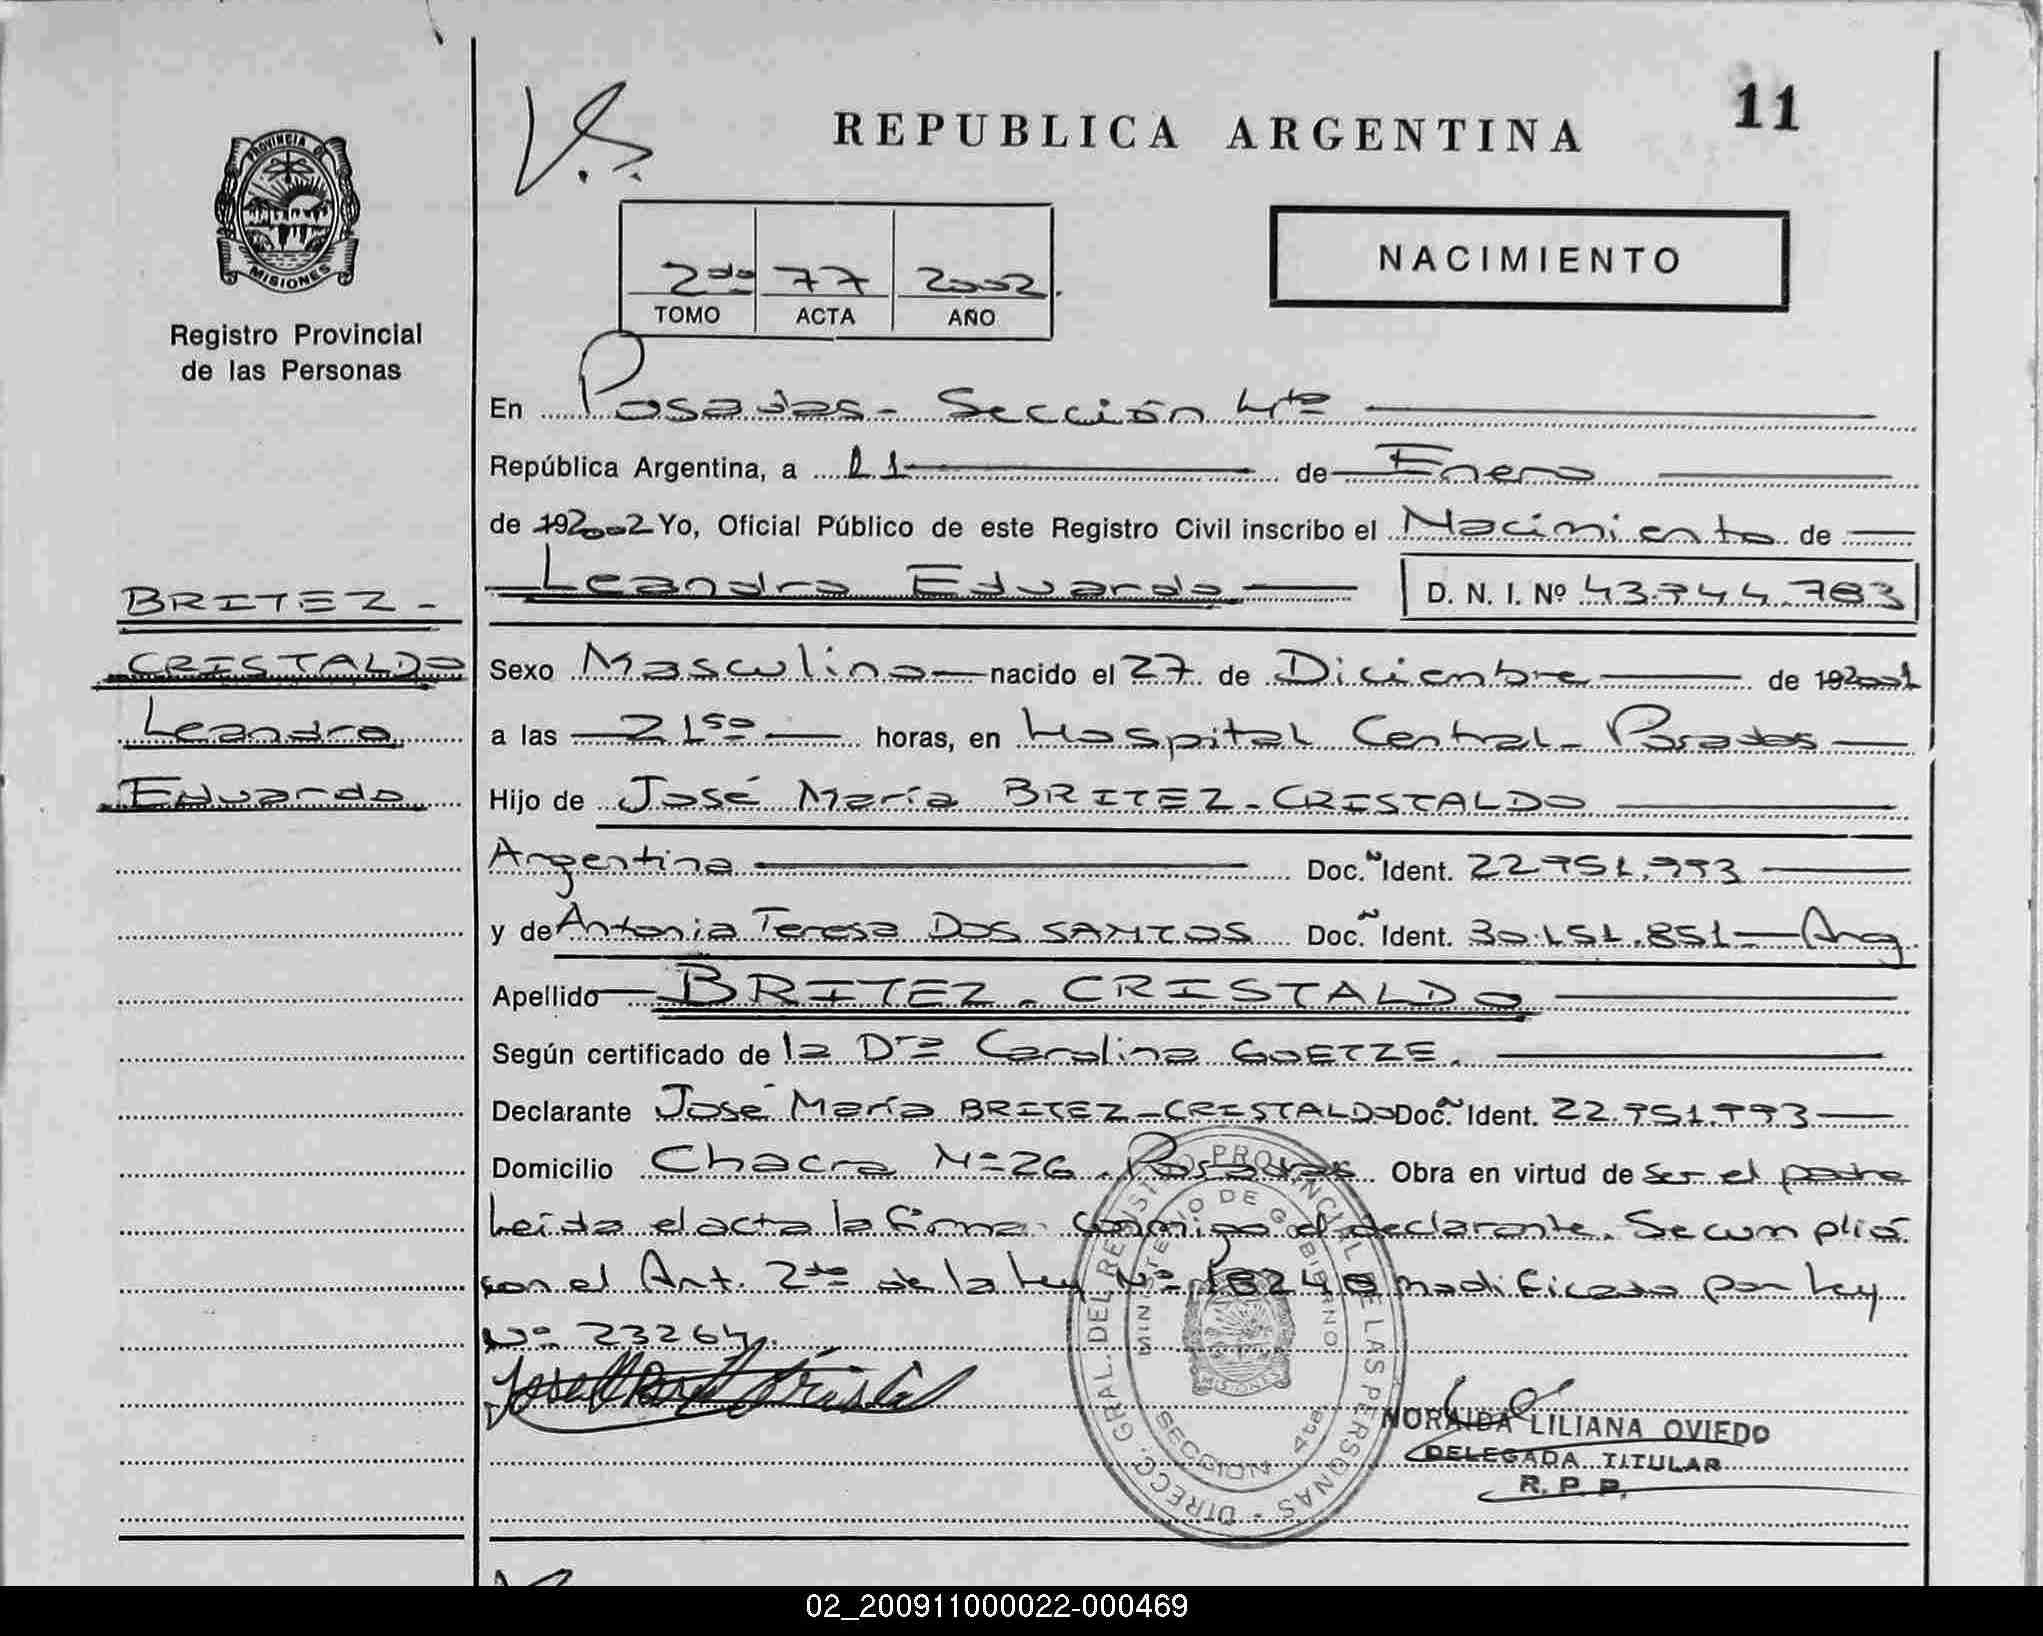 REPUBLICA ARGENTINA
11
PROVINCIA DE
MISIONES
Registro Provincial
de las Personas
2do 77 2002.
TOMO ACTA AÑO
NACIMIENTO
En Posadas - Sección 4ta
República Argentina, a 11 de Enero
de 192002 Yo, Oficial Público de este Registro Civil inscribo el Nacimiento de
Leandro Eduardo D. N. I. Nº 43.744.783
BRITEZ -
CRISTALDO
Leandro
Eduardo
Sexo Masculino nacido el 27 de Diciembre de 192001
a las 21 50 horas, en Hospital Central - Posadas
Hijo de José María BRITEZ - CRISTALDO
Argentina Doc. Ident. 22.951.993
y de Antonia Teresa DOS SANTOS Doc. Ident. 30.151.851 - Arg.
Apellido BRITEZ - CRISTALDO
Según certificado de la Dra Carolina GOETZE.
Declarante José María BRITEZ - CRISTALDO Doc. Ident. 22.951.993
Domicilio Chacra Nº 26 . Posadas. Obra en virtud de ser el padre
Leida el acta la firma conmigo el declarante. Se cumplió
con el Art. 2do de la Ley Nº 18248 modificado por Ley
Nº 23264.
DIRECC. GRAL. DEL REGISTRO PROVINCIAL DE LAS PERSONAS
MINISTERIO DE GOBIERNO
MISIONES
SECCION 4ta
NORAIDA LILIANA OVIEDO
DELEGADA TITULAR
R. P. P.
02_200911000022-000469